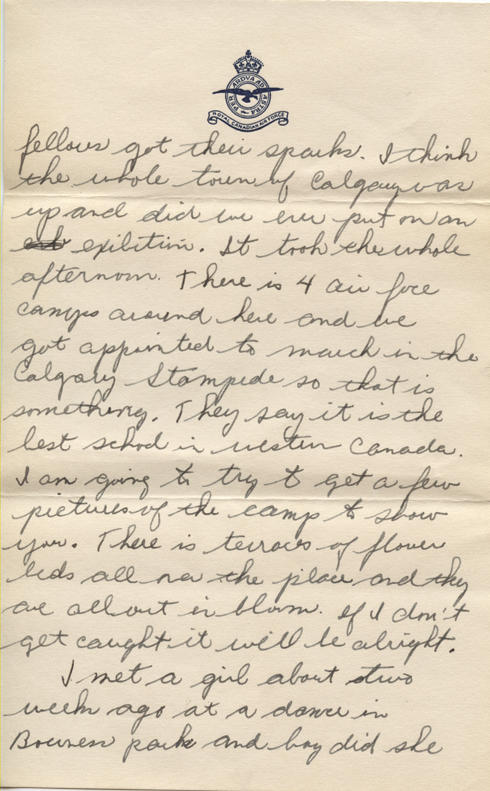 PER ARDVA AD ASTRA
ROYAL CANADIAN AIR FORCE
fellows got their sparks. I think
the whole town of Calgary was
up and did we ever put on an
exibition. It took the whole
afternoon. There is 4 air force
camps around here and we
got appointed to march in the
Calgary Stampede so that is
something. They say it is the
best school in western Canada.
I am going to try to get a few
pictures of the camp to show
you. There is terraces of flower
beds all over the place and they
are all out in bloom. If I don't
get caught it will be alright.
I met a girl about two
week ago at a dance in
Bowness park and boy did she